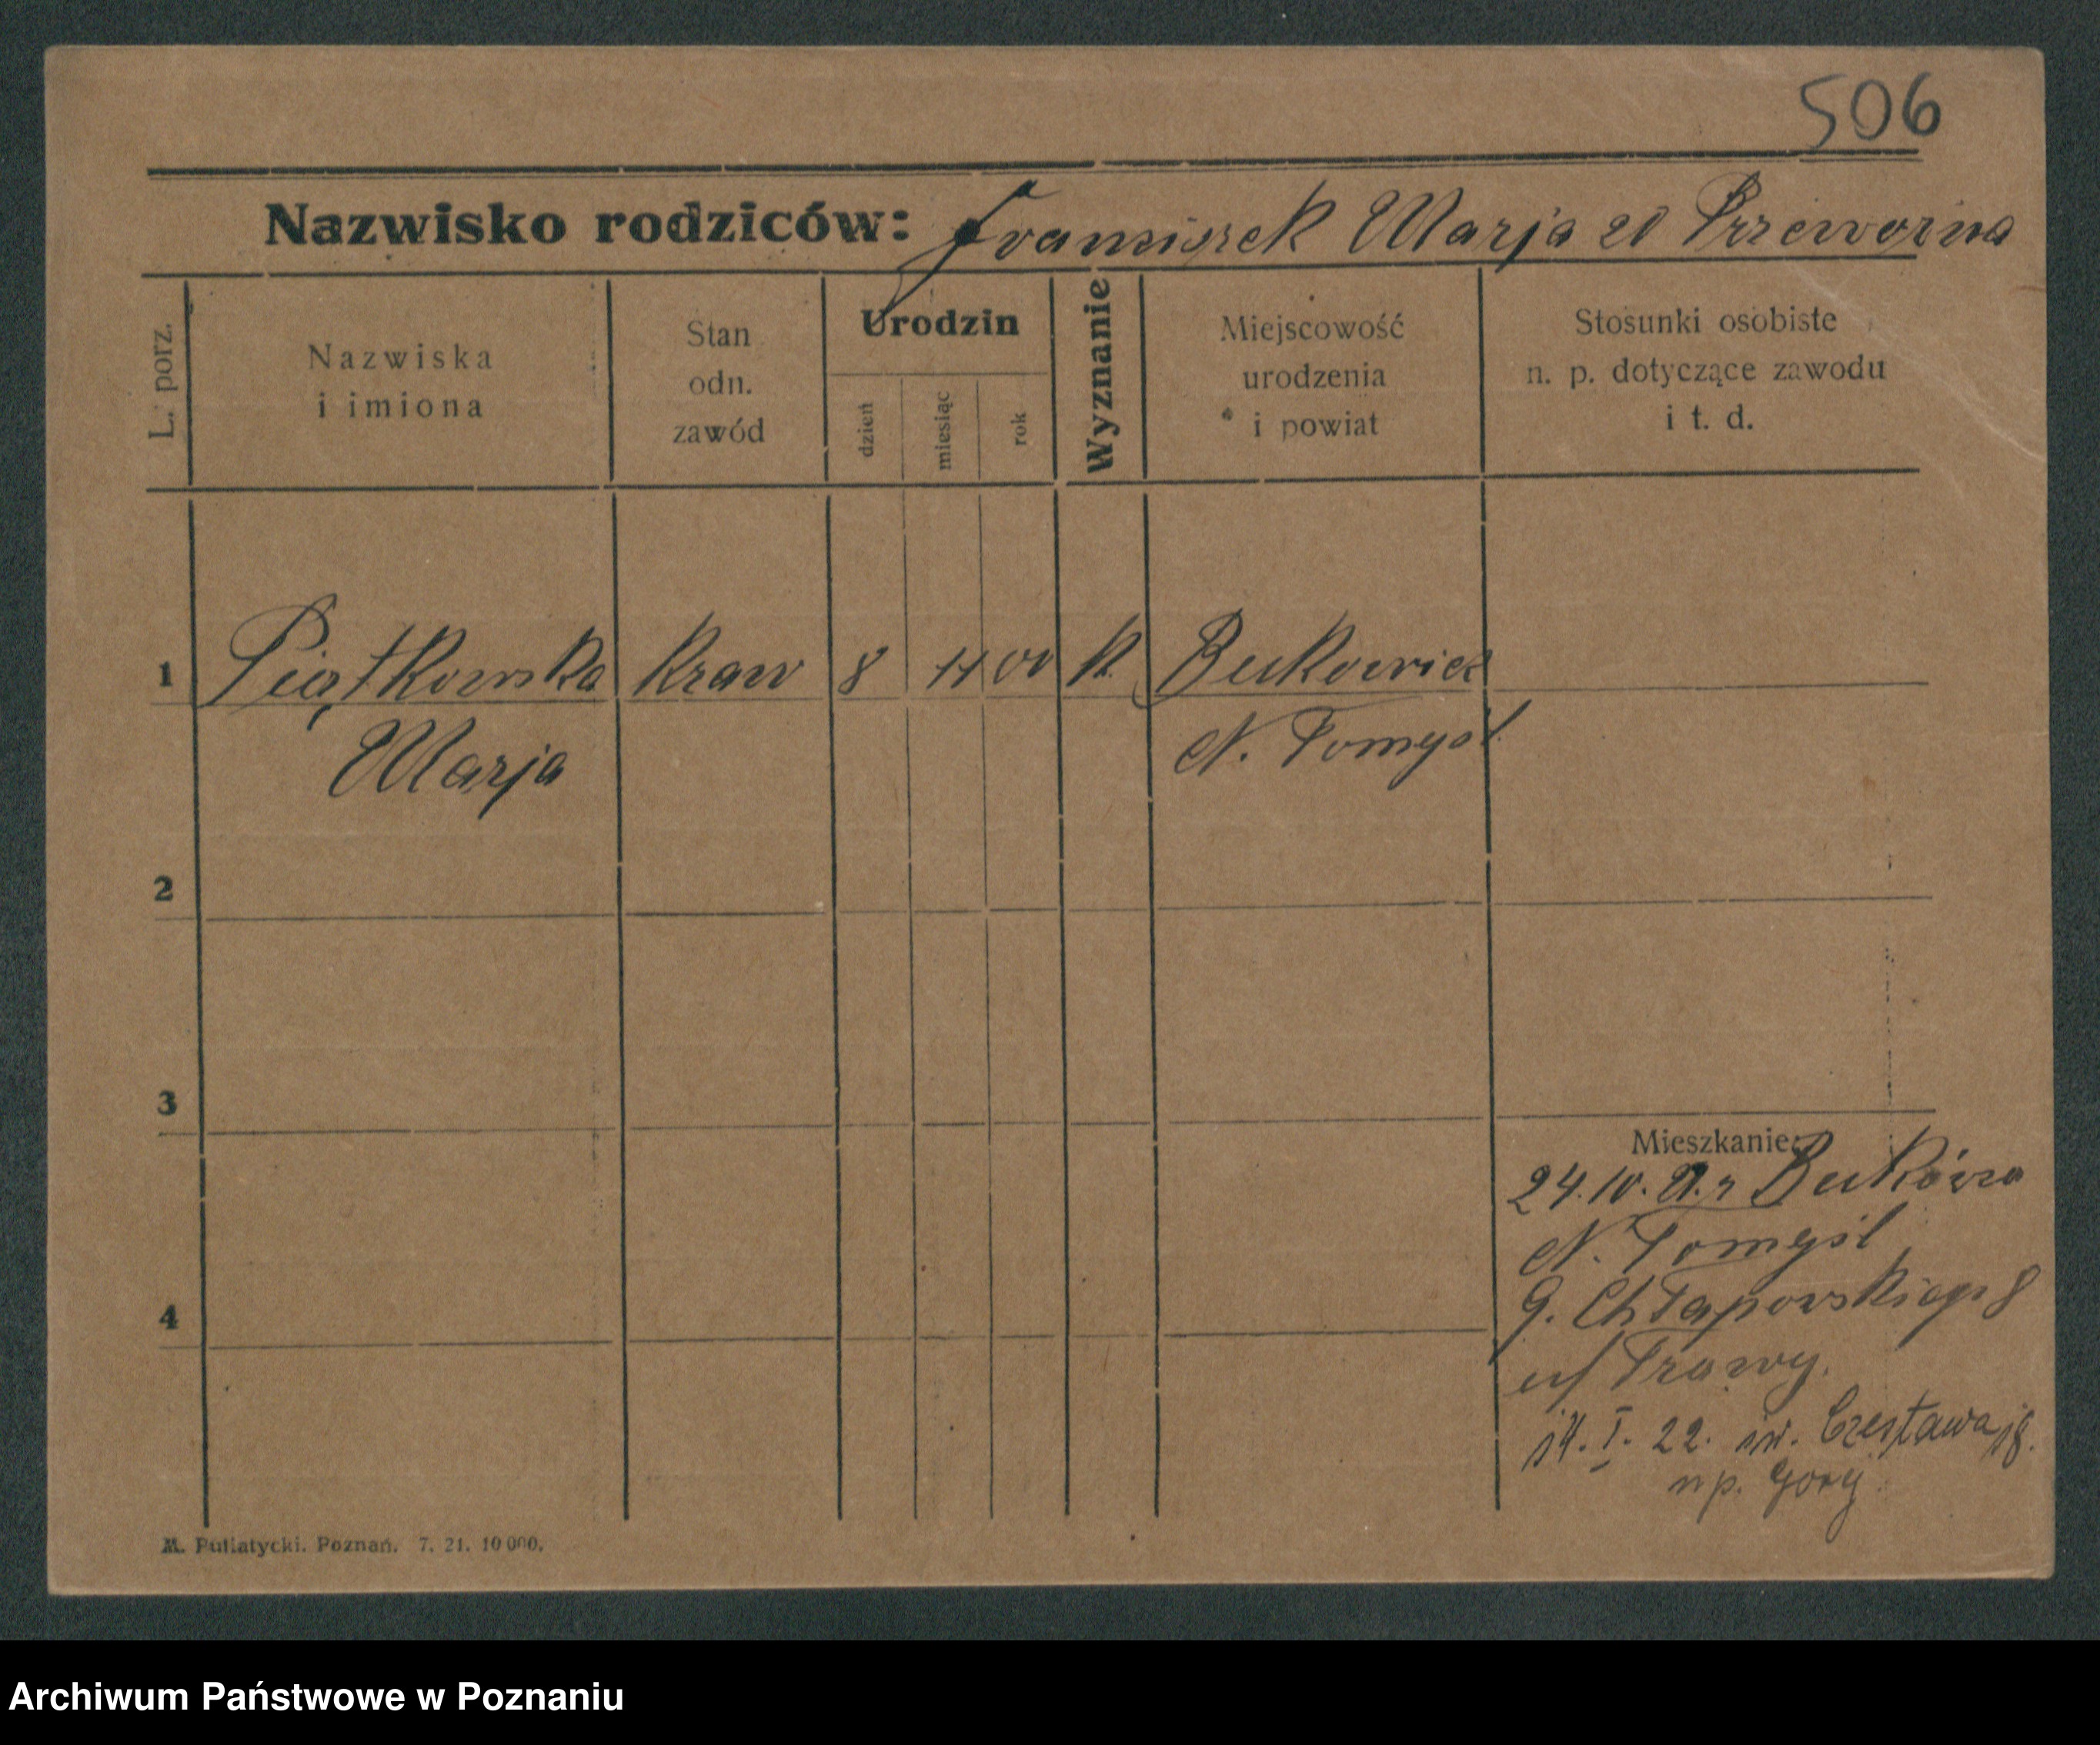 506
Nazwisko rodziców: Franciszek Marja zd Przewoźna
L. porz.
Nazwiska
i imiona
Stan
odn.
zawód
Urodzin
dzień
miesiąc
rok
Wyznanie
Miejscowość
urodzenia
i powiat
Stosunki osobiste
n. p. dotyczące zawodu
i t. d.
1 Piątkowska Kraw 8 11 00 k. Bukowiec
Marja N. Tomyśl
2
3
4
Mieszkanie:
24.10. 21. z
N. Tomyśl
G. Chłapowskiego 8
u/
14. I. 22. św. Czesława 18.
np. Góry
M. Putiatycki. Poznań. 7. 21. 10 000.
Archiwum Państwowe w Poznaniu